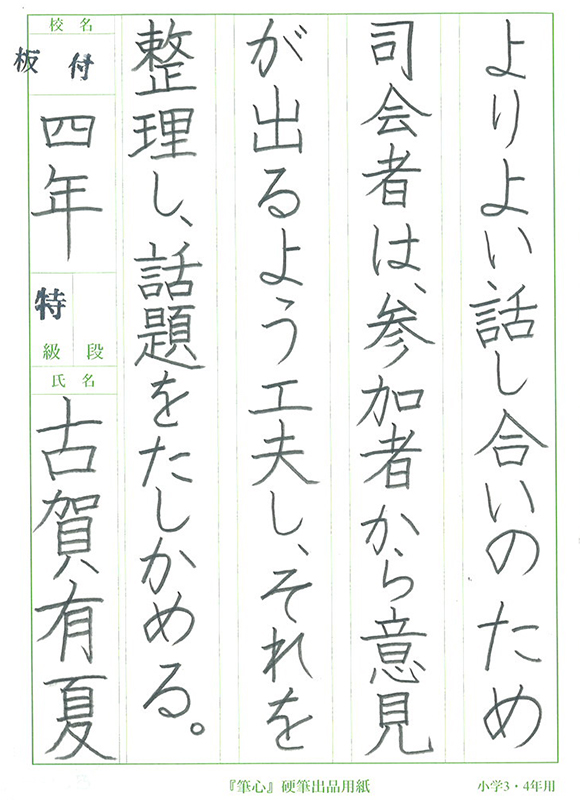 よりよい話し合いのため
司会者は、参加者から意見
が出るよう工夫し、それを
整理し、話題をたしかめる。
校名
板付
四年
特
級段
氏名
古賀有夏
『筆心』硬筆出品用紙
小学3・4年用